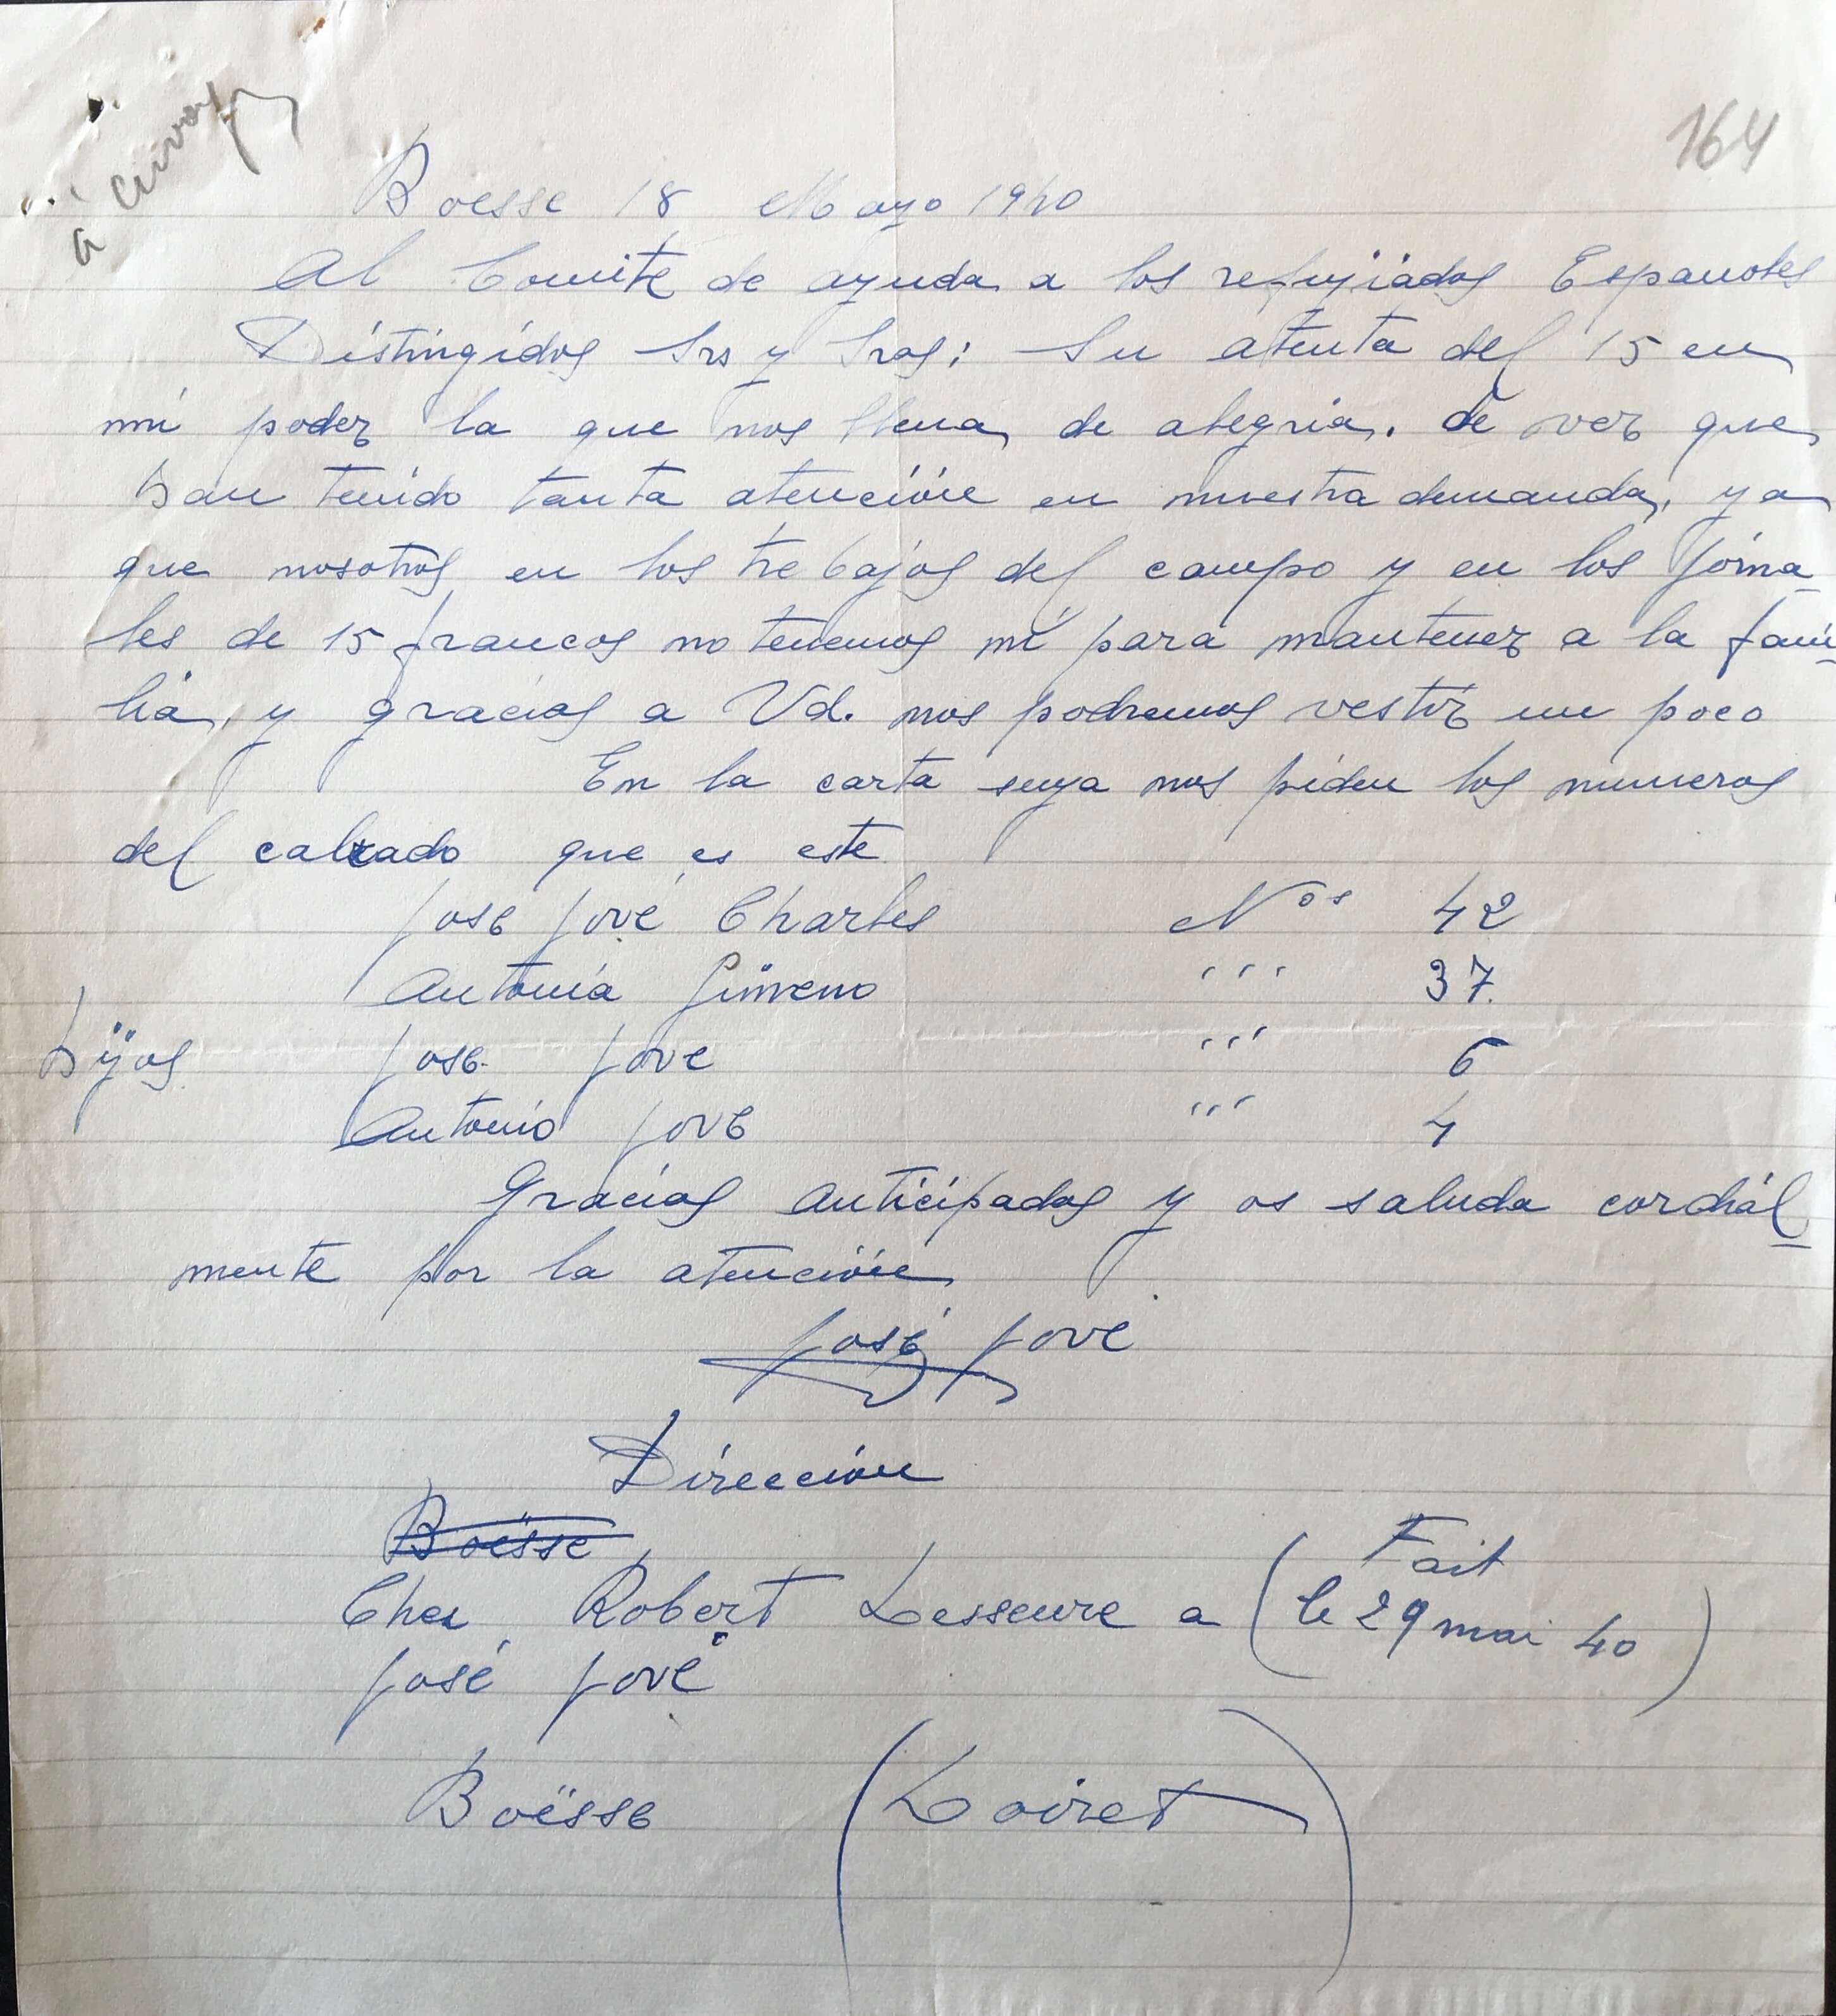 164
à
Boesse 18 Mayo 1940
Al Comite de ayuda a los refujiados Españoles
Distingidos Srs y Sras: Su atenta del 15 en
mi poder la que nos llena de alegria. de ver que
han tenido tanta atención en nuestra demanda, ya
que nosotros en los trebajos del campo y en los jorna
les de 15 francos no tenemos ni para mantener a la fami
lia, y gracias a Vd. nos podremos vestir un poco
En la carta suya nos piden los numeros
del calzado que es este
José Jové Charles Nos 42
Antonia Gimeno ''' 37.
hijos José Jove ''' 6
Antonio Jove ''' 4
Gracias anticipadas y os saluda cordial
mente por la atención
José Jove
Dirección
Boësse
Chez Robert Lesseure a (Fait
le 29 mai 40)
José Jové
Boësse (Loiret)